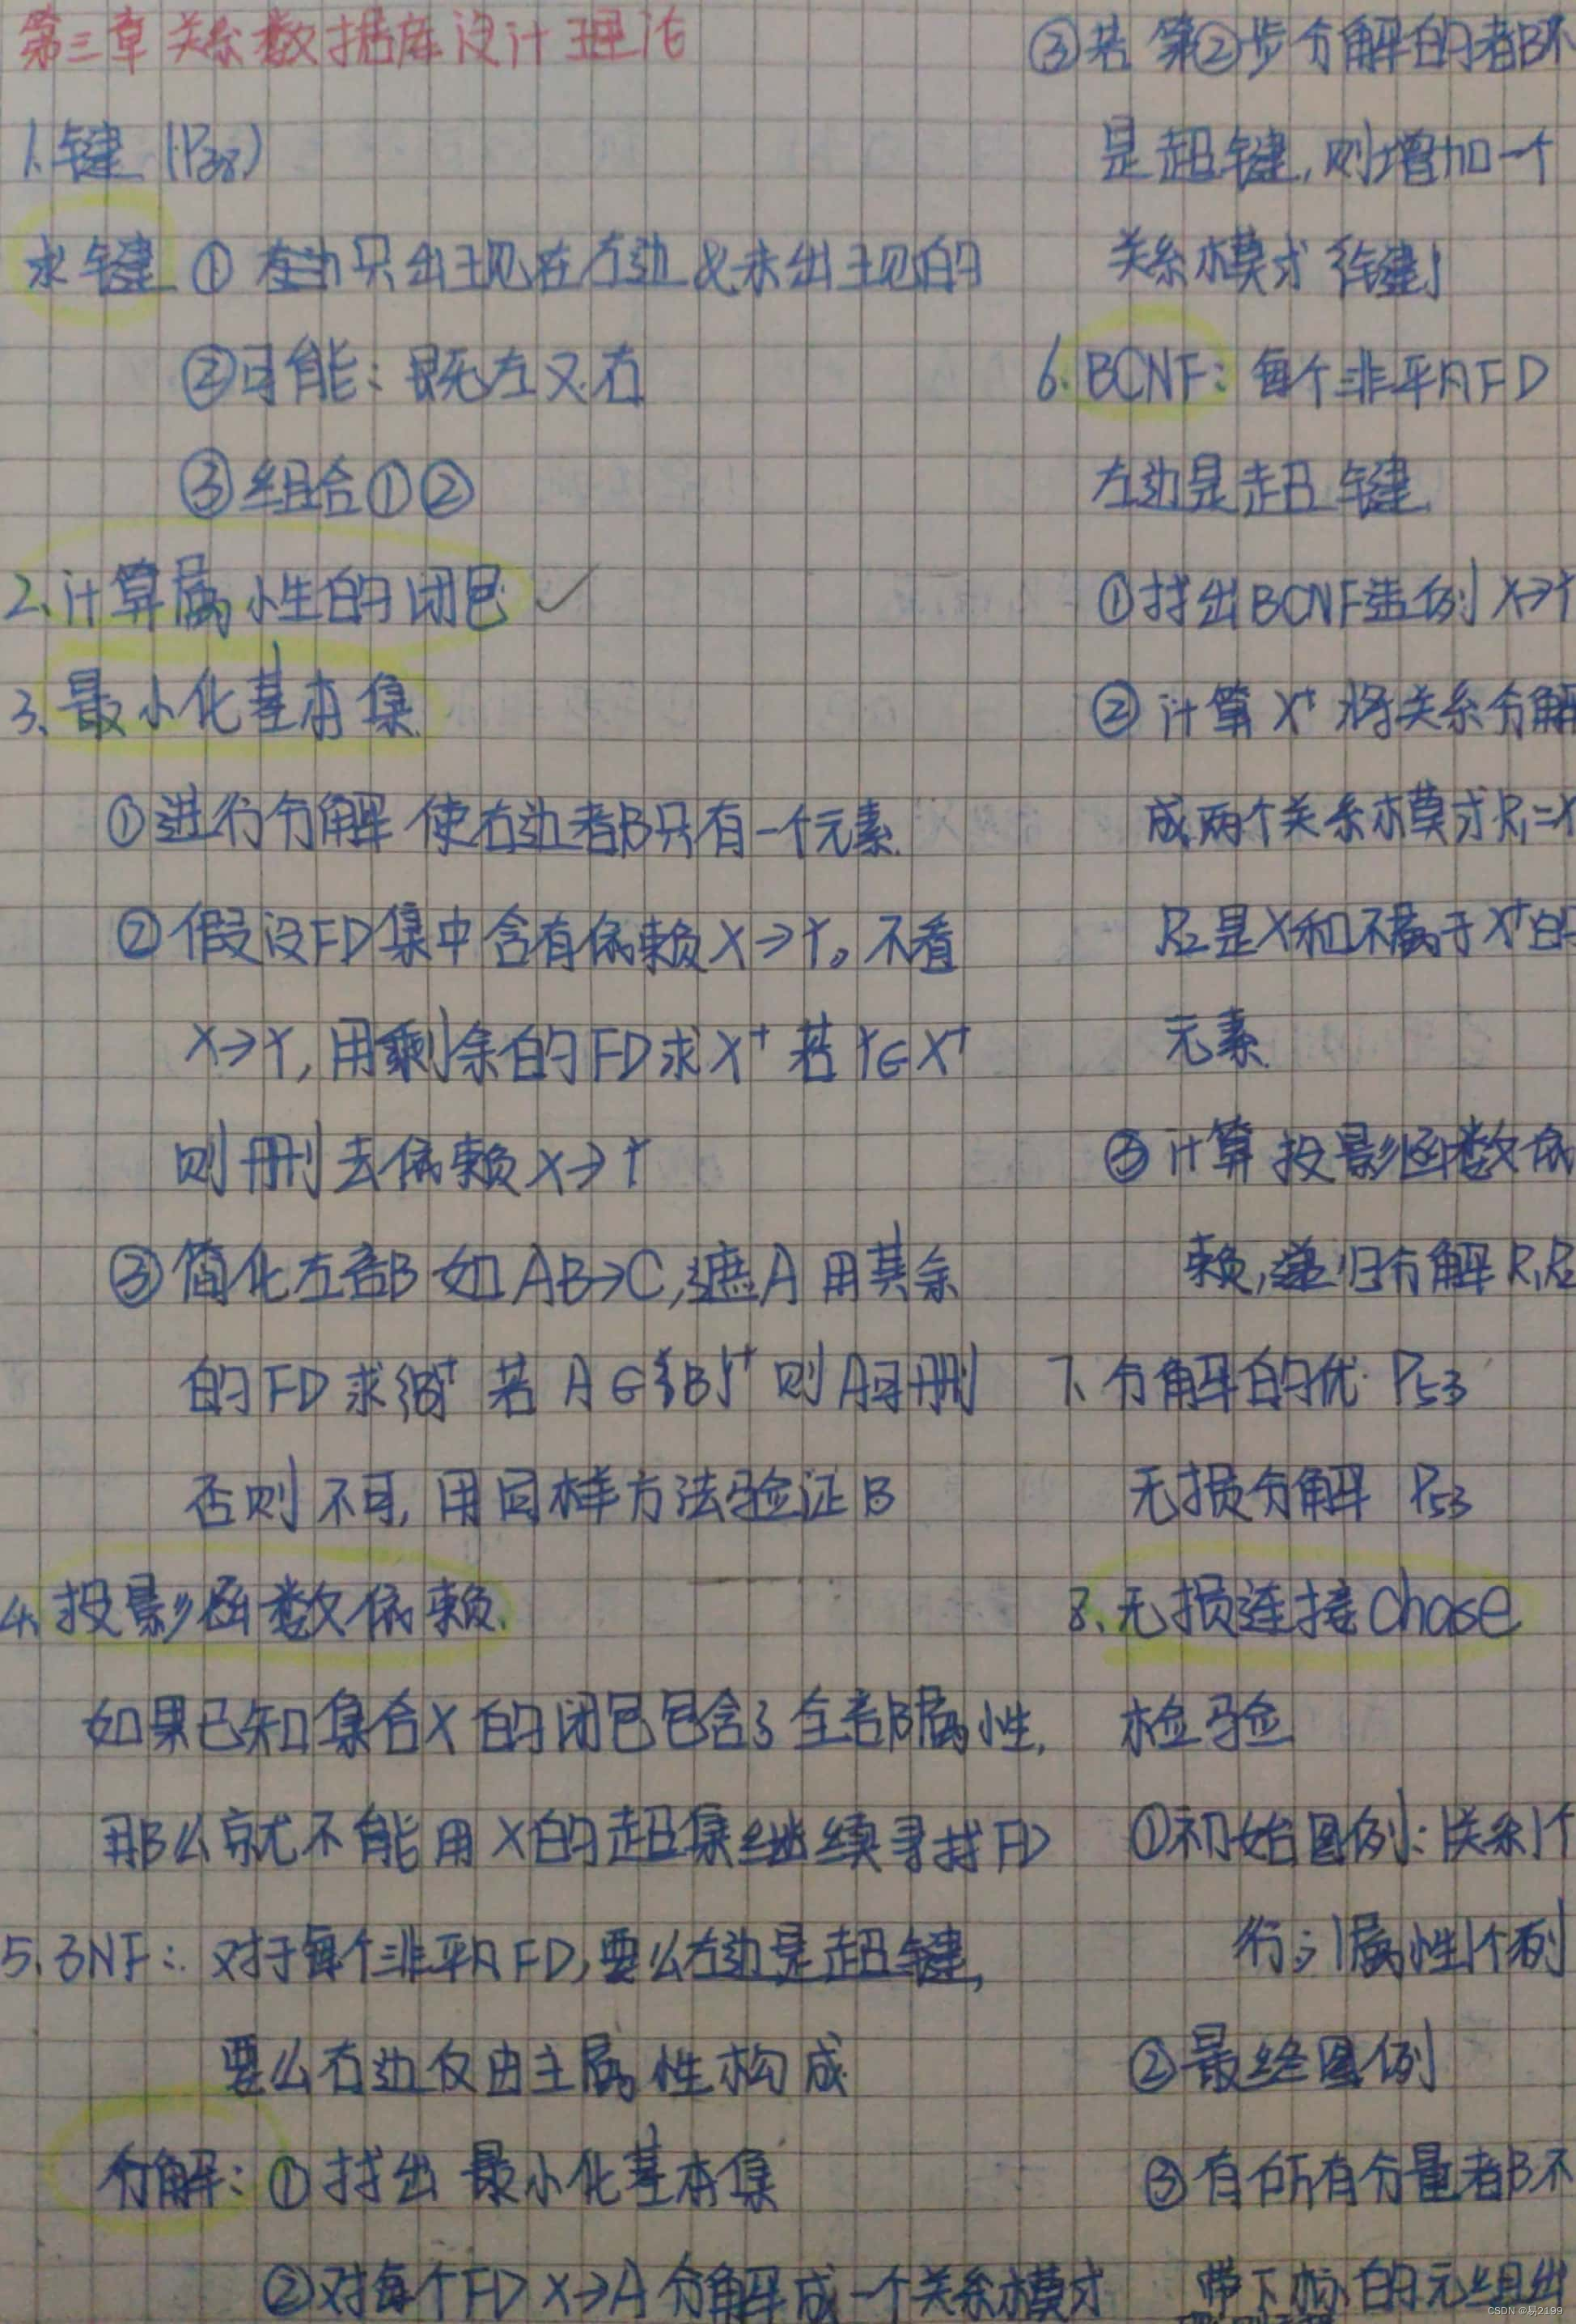 第三章 关系数据库设计理论
1.键 (P38)
求键 ① 只出现在左边 & 未出现的
②可能:既左又右
③组合①②
2.计算属性的闭包 ✓
3.最小化基本集
①进行分解 使右边都只有一个元素.
②假设FD集中含有依赖X→Y。不看
X→Y,用剩余的FD求X⁺ 若Y∈X⁺
则删去依赖X→Y
③简化左部 如AB→C,遮A用其余
的FD求{B}⁺ 若A∈{B}⁺ 则A可删
否则不可,用同样方法验证B
4.投影函数依赖.
如果已知集合X的闭包包含了全部属性,
那么就不能用X的超集继续寻找FD
5.3NF:对于每个非平凡FD,要么左边是超键,
要么右边仅由主属性构成
分解:①找出 最小化基本集
②对每个FD X→A分解成一个关系模式
③若第②步分解的都不
是超键,则增加一个
关系模式{键}
6.BCNF:每个非平凡FD
左边是超键
①找出BCNF违例X→Y
②计算X⁺将关系分解
成两个关系模式R₁=X
R₂是X和不属于X⁺的
元素
③计算投影函数依
赖,递归分解R₁R₂
7、分解的优 P53
无损分解 P53
8、无损连接chase
检验
①初始图例:1关系1个
行;1属性1个列
②最终图例
③有所有分量都不
带下标的元组出
CSDN @易2199